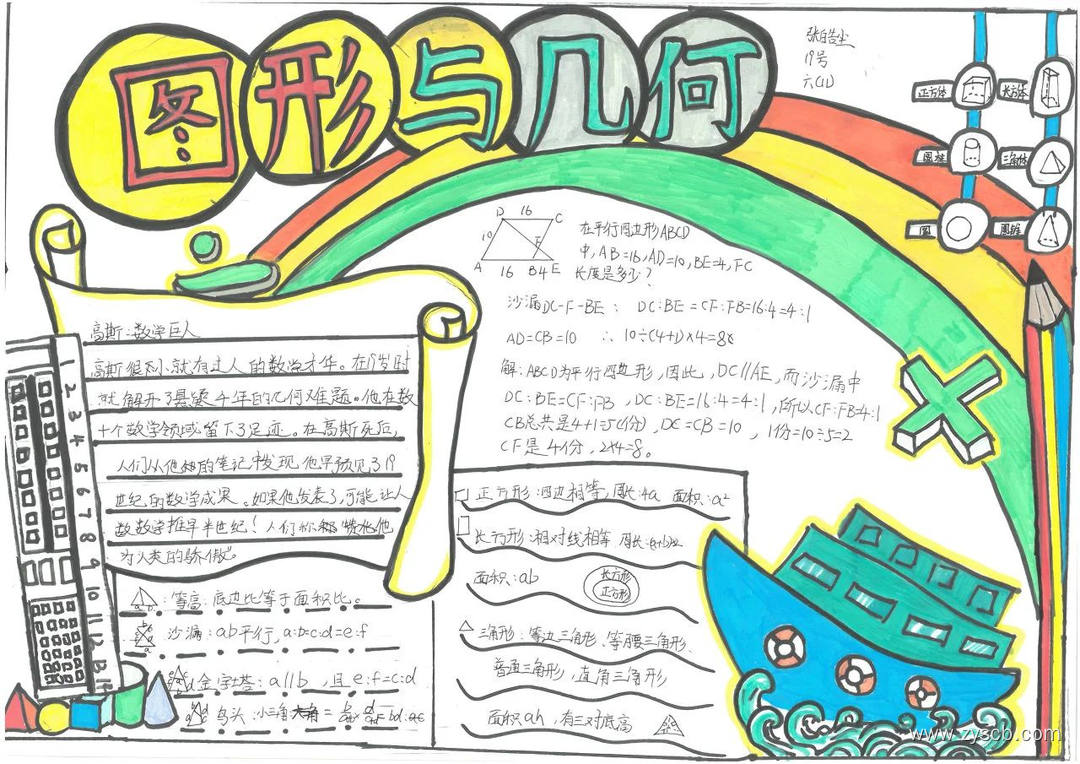 图形与几何
19号
正方体
长方体
圆柱
三角体
圆
圆锥
D 16 C
10
F
A 16 B4E
在平行四边形ABCD
中,AB=16,AD=10,BE=4,FC
长度是多少?
沙漏DC-F-BE: DC:BE=CF:FB=16:4=4:1
AD=CB=10 ∴10÷(4+1)×4=8
解:ABCD为平行四边形,因此,DC//AE,而沙漏中
DC:BE=CF:FB,DC:BE=16:4=4:1,所以CF:FB=4:1
CB总共是4+1=5(份),DC=CB=10,1份=10÷5=2
CF是4份,2×4=8。
高斯:数学巨人
高斯很小就有过人的数学才华。在19岁时
就解开了悬疑千年的几何难题。他在数
十个数学领域留下了足迹。在高斯死后,
人们从他的笔记中发现他早预见了19
世纪的数学成果。如果他发表了,可能让人
数学推早半世纪!人们称他
为人类的骄傲。
1
2
3
4
5
6
7
8
9
10
11
12
13
等高:底边比等于面积比。
沙漏:ab平行,a:b=c:d=e:f
金字塔:a//b,且e:f=c:d
鸟头:小三角
正方形:四边相等,周长:4a 面积:a²
长方形:相对线相等 周长:(a+b)×2
面积:ab
长方形
正方形
三角形:等边三角形、等腰三角形、
普通三角形,直角三角形
面积ah,有三对底高
www.zyscb.com